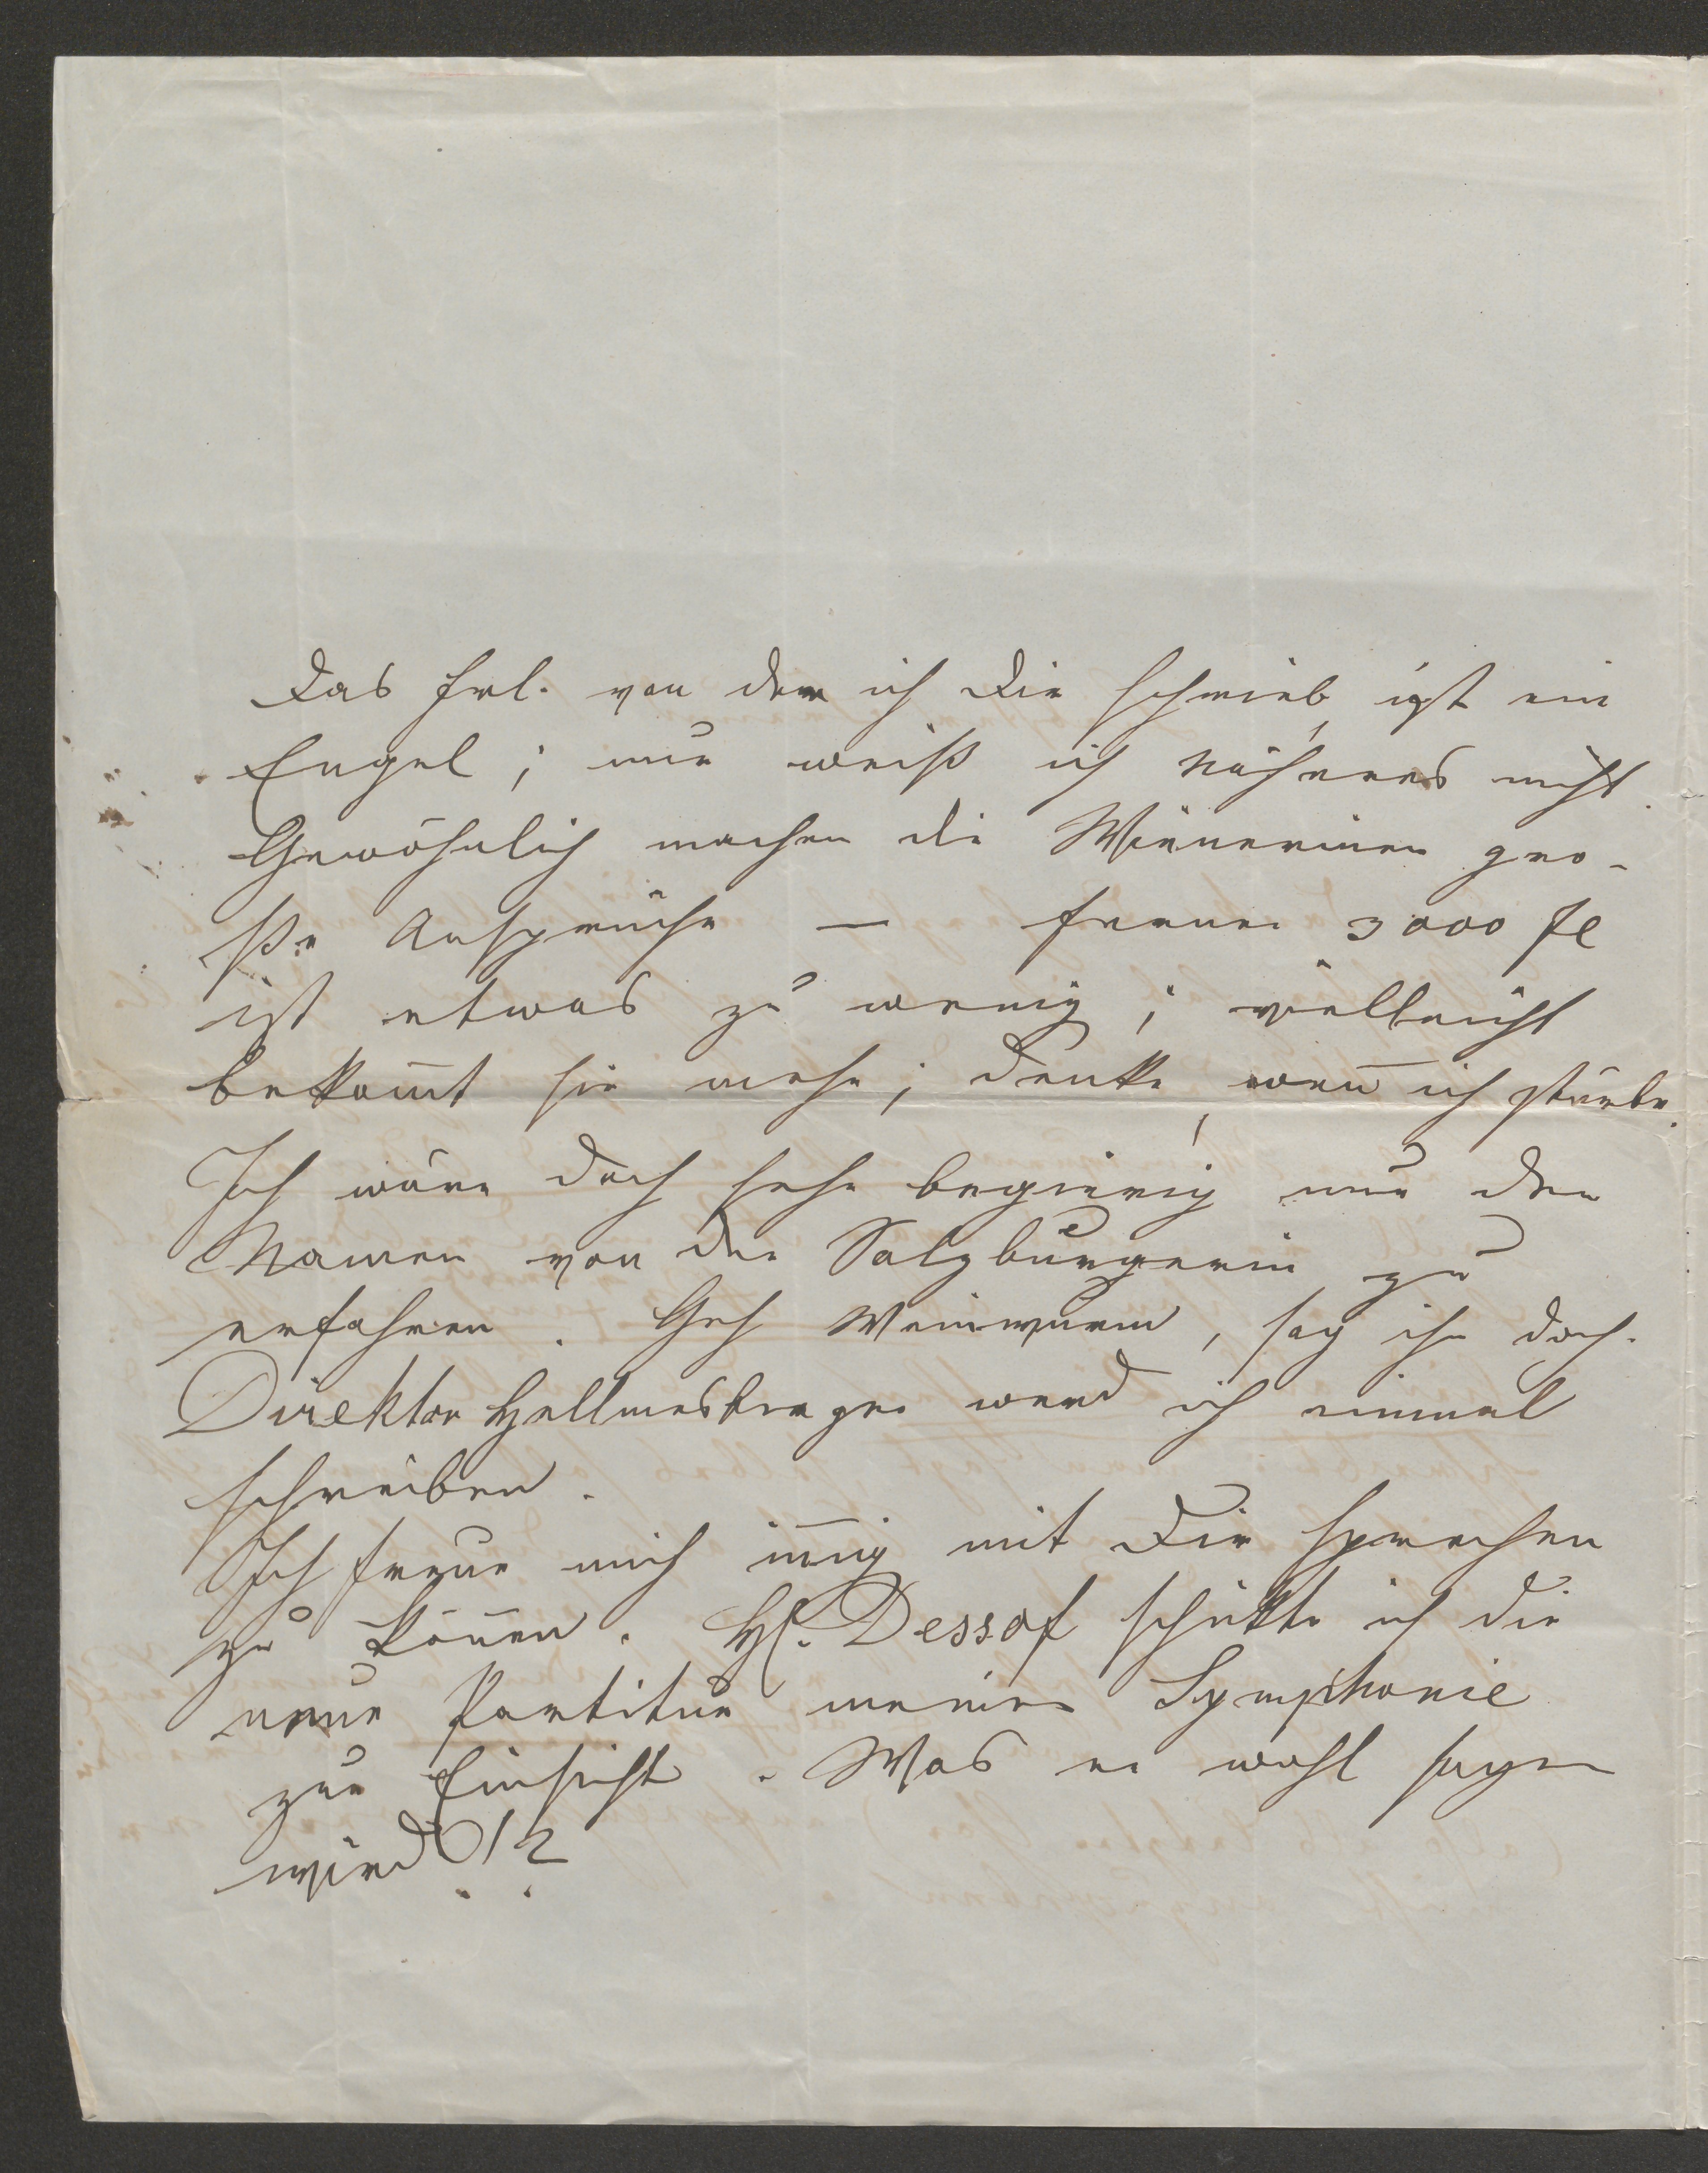 Das Frl. von der ich Dir schrieb, ist ein
Engel; nur weiß ich näheres nicht.
Gewöhnlich machen die Wienerinen gro-
ße Ansprüche — ferner 3000 fl
ist etwas zu wenig; vielleicht
bekom̄t sie mehr; denke, wen̄ ich stürbe.
Ich wäre doch sehr begierig nur den
Namen von der Salzburgerin zu
erfahren. Geh Weinwurm, sag ihn doch.
Direktor Hellmesberger werd ich einmal
schreiben.
Ich freue mich in̄ig mit Dir sprechen
zu kön̄en. H. Dessof schikte ich die
neue Partitur meiner Symphonie
zur Einsicht. Was er wohl sagen
wird!?